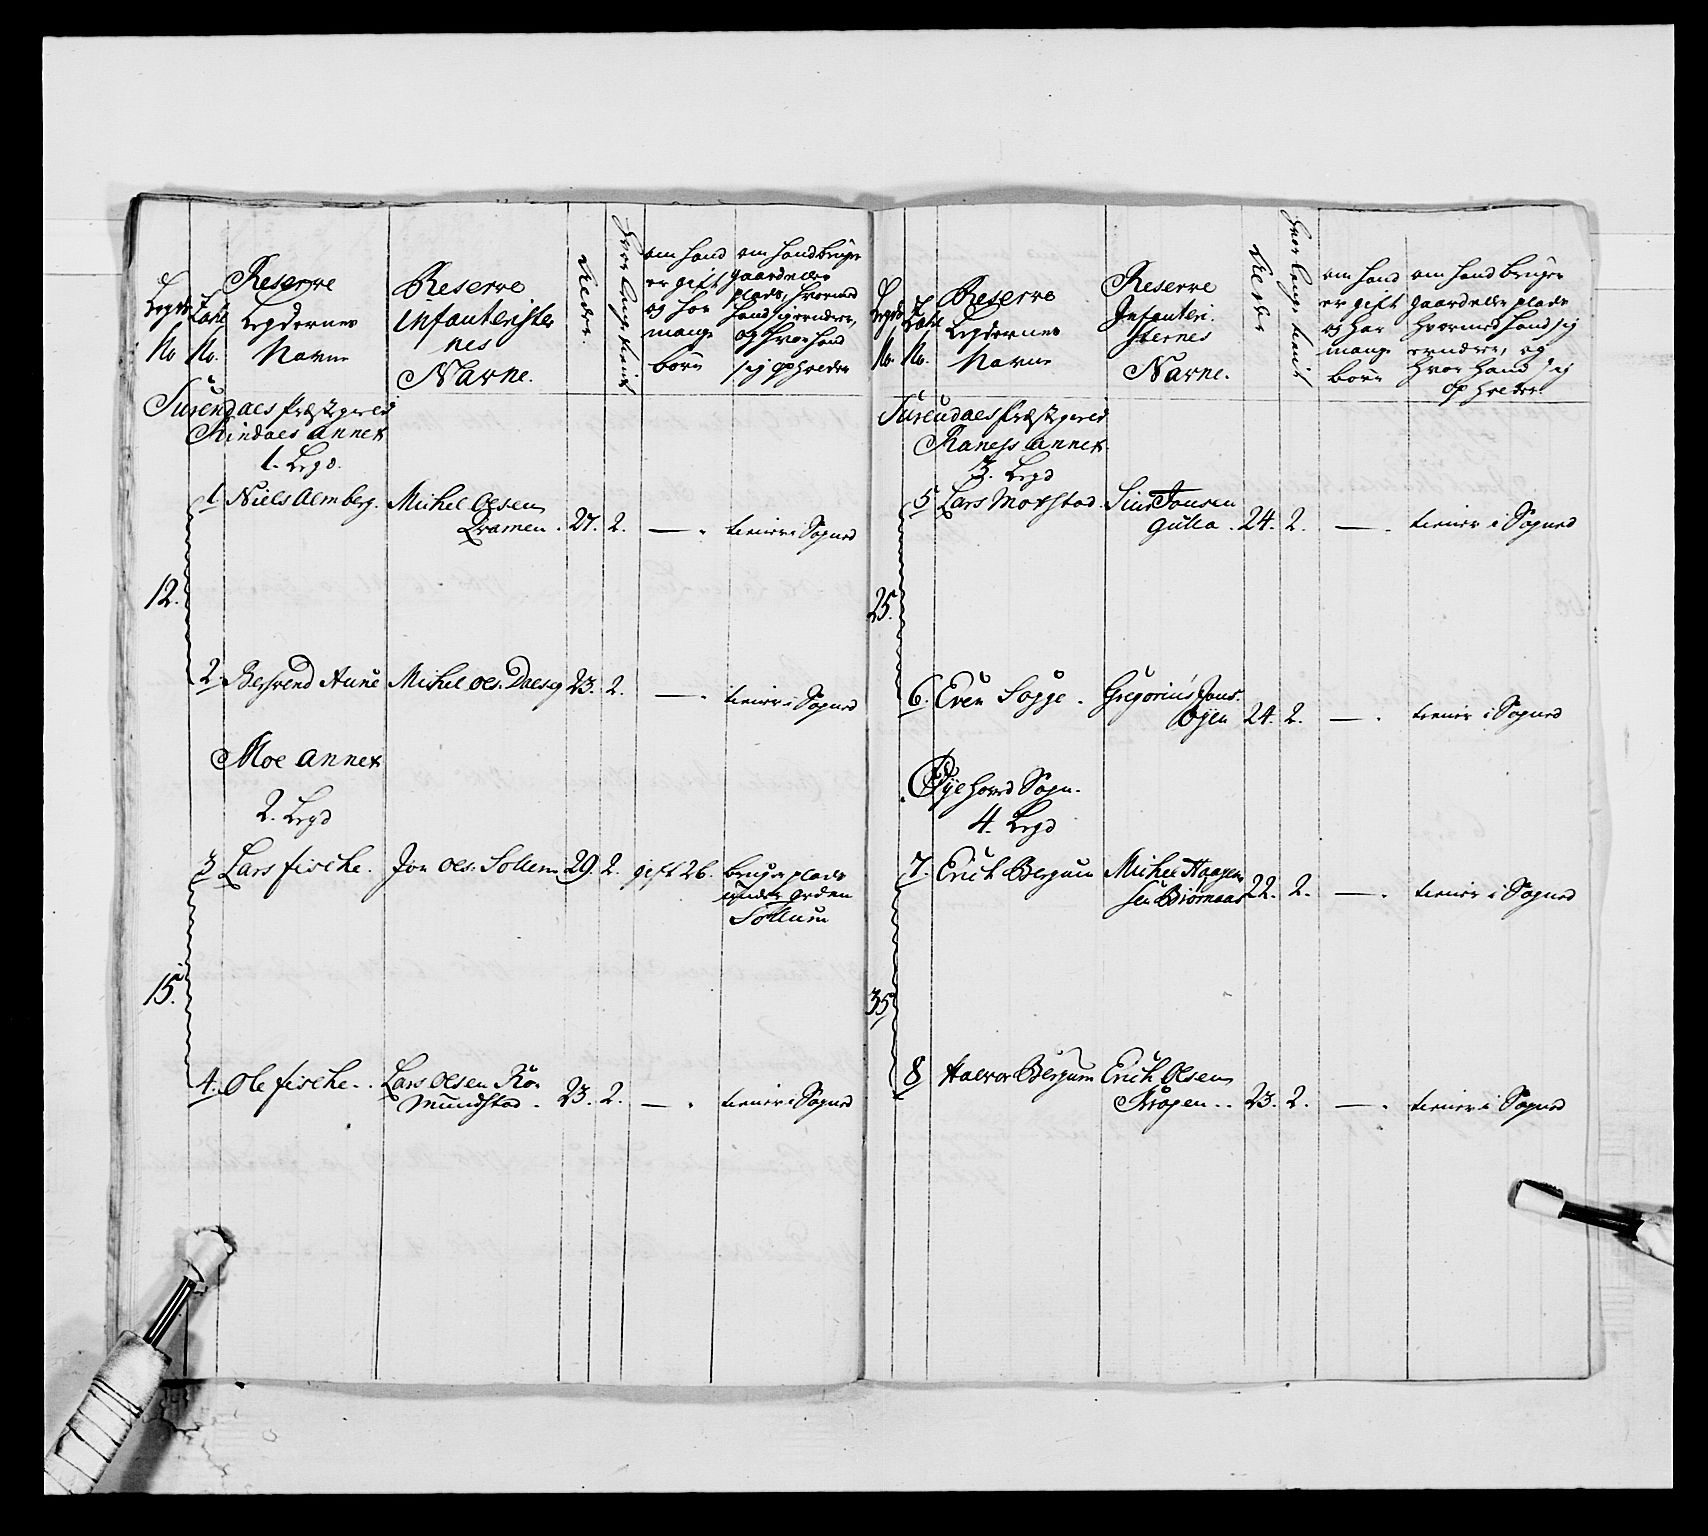 Legds No
Tahl No.
Reserve
Legdernes
Navne
Reserve
Infanterister
nes
Navne.
Alder.
hvor lenge tient
om hand
er gift
og hor
mange
børn
om hand bruger
gaard eller
plads, hvormed
hand sig ernærer,
og hvor hand
sig opholder
Surendaels Præstegield
Rindaels Annex
1. Legd.
1. Niels Almberg. Michel Olsen
Qramen. 27. 2. — . tiener i Sognet
12.
2. Aune Michel Ols. Dalseg 23. 2. — . tiener i Sognet
Moe Annex
2. Legd
3 Lars fische. Jon Ols. Sollem 29. 2. gift 2b. bruger plads
under gorden
Sollum
15.
4. Ole fische. Lars Olsen Rø
mundstad. 23. 2. — . tiener i Sognet
Legds No.
Tahl No.
Reserve
Legdernes
Navne
Reserve
Infanteri.
sternes
Navne.
Alder
hvor lenge tient
om hand
er gift
og har
mange
børn
om hand bruger
gaard eller plads
hvormed hand sig
ernærer, og
hvor hand sig
opholder.
Surendaels Præstegield
Raness Annex.
3. Legd
5 Lars Moxstad. Siur Jonsen
Gulla. 24. 2. — . tiener i Sognet
25.
6. Even Sogge. Gregorius Jons.
Øyen 24. 2. — . tiener i Sognet
Øye hoved Sogn.
4. Legd
7. Erich Bergum Michel Haagen
sen 22. 2. — . tiener i Sognet
35
8 Halvor Bergum Erich Olsen
Krogen. 23. 2. — . tiener i Sognet